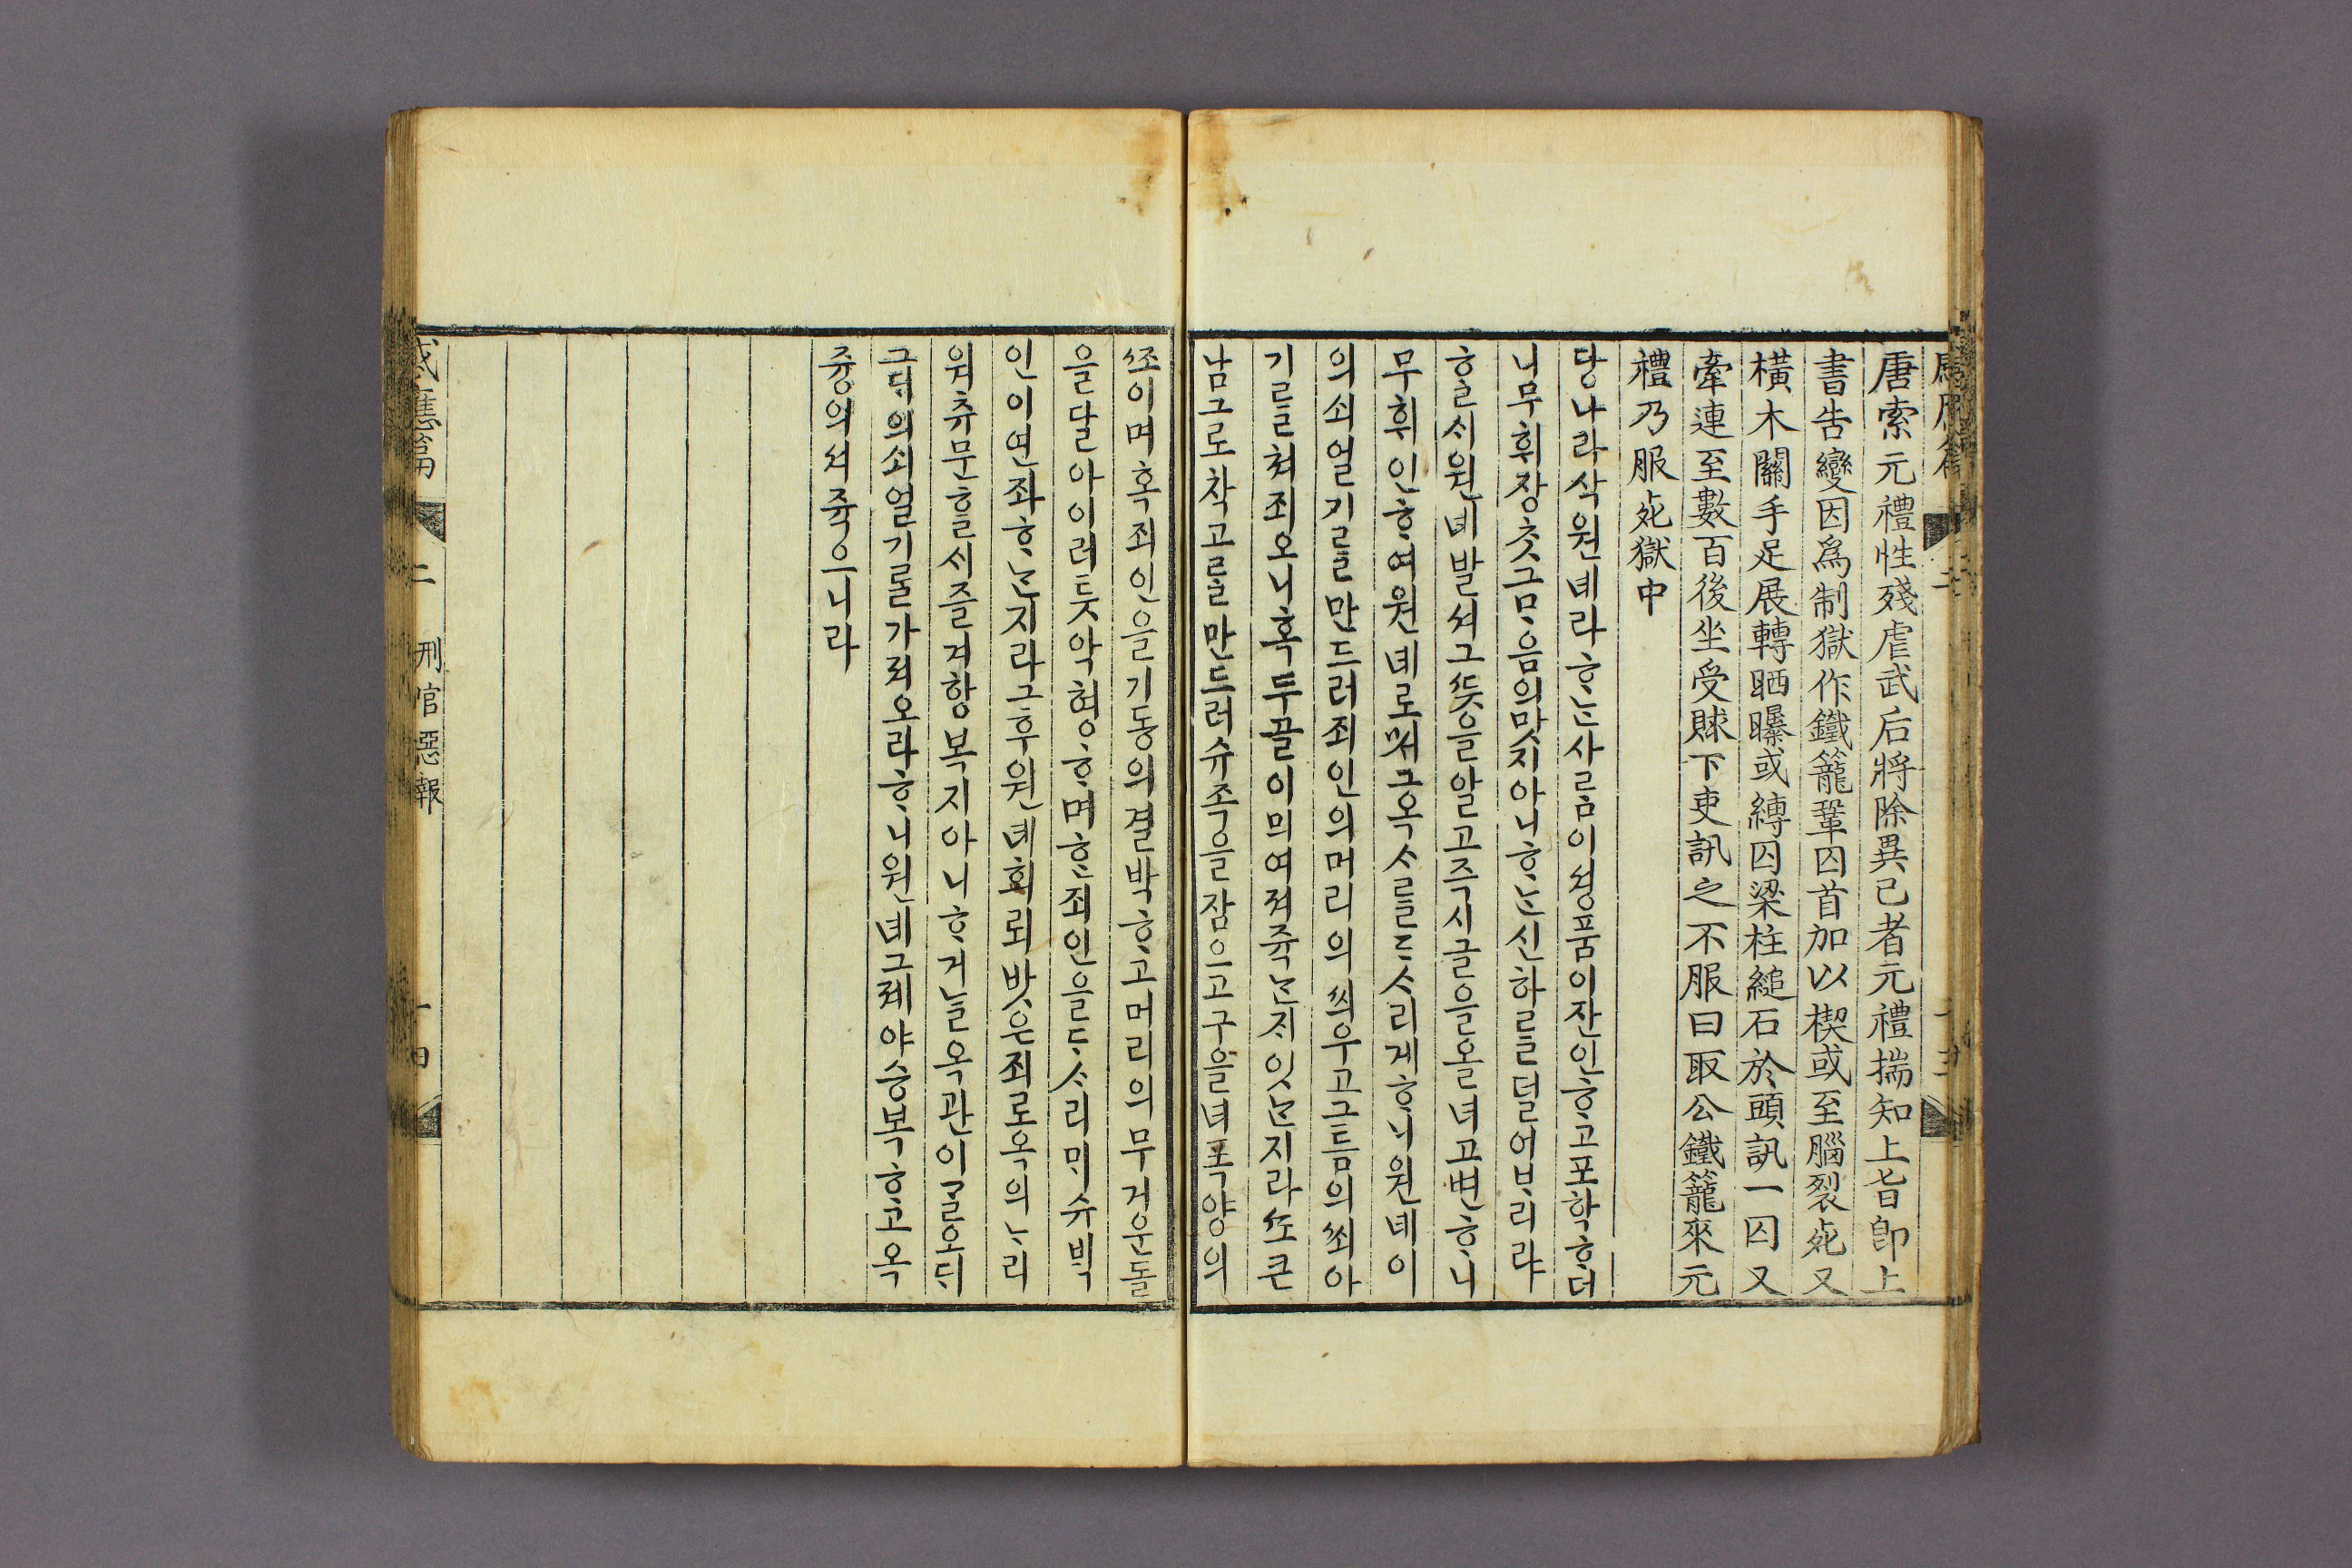 唐索元禮性殘虐武后將除異己者元禮揣知上旨卽上
書告變因爲制獄作鐵籠鞏囚首加以楔或至腦裂死又
橫木關手足展轉晒曝或縛囚梁柱縋石於頭訊一囚又
牽連至數百後坐受賕下吏訊之不服曰取公鐵籠來元
禮乃服死獄中
당나라삭원녜라ᄒᆞᄂᆞᆫ사ᄅᆞᆷ이셩품이잔인ᄒᆞ고포학ᄒᆞ더
니무휘쟝ᄎᆞᆺ그ᄆᆞ음의맛지아니ᄒᆞᄂᆞᆫ신하ᄅᆞᆯ덜어ᄇᆞ리랴
ᄒᆞᆯᄉᆡ원녜발셔그ᄯᅳᆺ을알고즉시글을올녀고변ᄒᆞ니
무휘인ᄒᆞ여원녜로ᄡᅥ그옥ᄉᆞᄅᆞᆯᄃᆞᄉᆞ리게ᄒᆞ니원녜이
의쇠얼기ᄅᆞᆯ만드러죄인의머리의씌우고그틈의쐬아
기ᄅᆞᆯ쳐죄오니혹두골이ᄯᅴ여져쥭ᄂᆞᆫ쟈잇ᄂᆞᆫ지라ᄯᅩ큰
남그로착고ᄅᆞᆯ만드러슈족을잠으고구을녀폭양의
ᄶᅩ이며혹죄인을기동의결박ᄒᆞ고머리의무거운돌
을달아이러ᄐᆞᆺ악형ᄒᆞ며ᄒᆞᆫ죄인을ᄃᆞᄉᆞ리ᄆᆡ슈ᄇᆡᆨ
인이연좌ᄒᆞᄂᆞᆫ지라그후원녜회뢰밧은죄로옥의ᄂᆞ리
워츄문ᄒᆞᆯᄉᆡ즐겨항복지아니ᄒᆞ거ᄂᆞᆯ옥관이ᄀᆞᆯ오ᄃᆡ
그ᄃᆡ의쇠얼기ᄅᆞᆯ가져오라ᄒᆞ니원녜그졔야승복ᄒᆞ고옥
즁의셔쥭으니라
感應篇 二 刑官惡報 十四